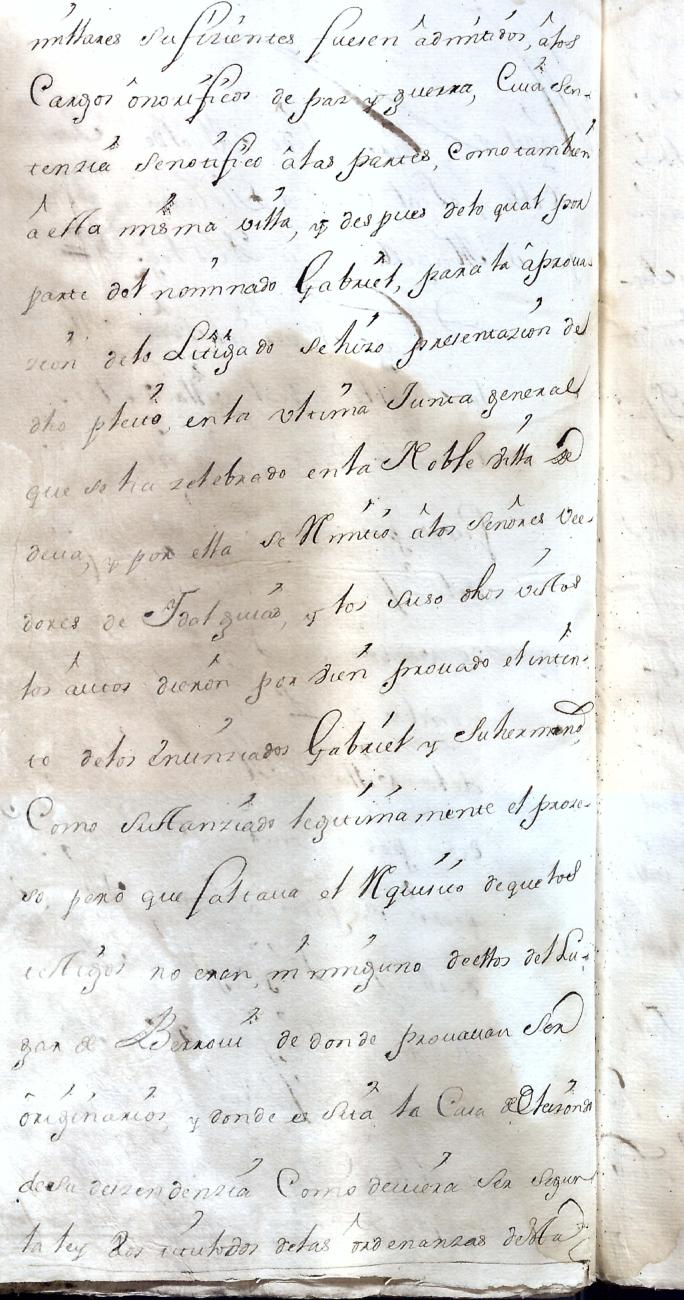 millares sufizientes, fuesen âdmitidos, âlos
Cargos ônorificos de paz y guerra, Cuiâ Sen-
tenziâ senotifico âlas partes, Como tambien
âella misma villa, y despues delo qual por
parte del nominado Gabriel, para la âproua-
zion delo Litigado se hizo presentazion de
dho pleito, en la vltima Junta general
que se ha zelebrado en la Noble villa de
deua, y por ella se Rimitio âlos Señores Vee-
dores de Idalguias, y los suso dhos vistos
los âutos dieron por bien prouado el inten-
to delos enunziados Gabriel y su hermano,
Como sustanziado legitimamente el proze-
so, pero que faltaua el Rquisito de que los
testigos no eran, ni ninguno de ellos del Lu-
gar de Berroui de donde prouauan Ser
ôriginarios, y donde es sitâ la Casa de
de su deszendenzia Como deuiera ser segun
la ley dos titulo dos delas ôrdenanzas de esta